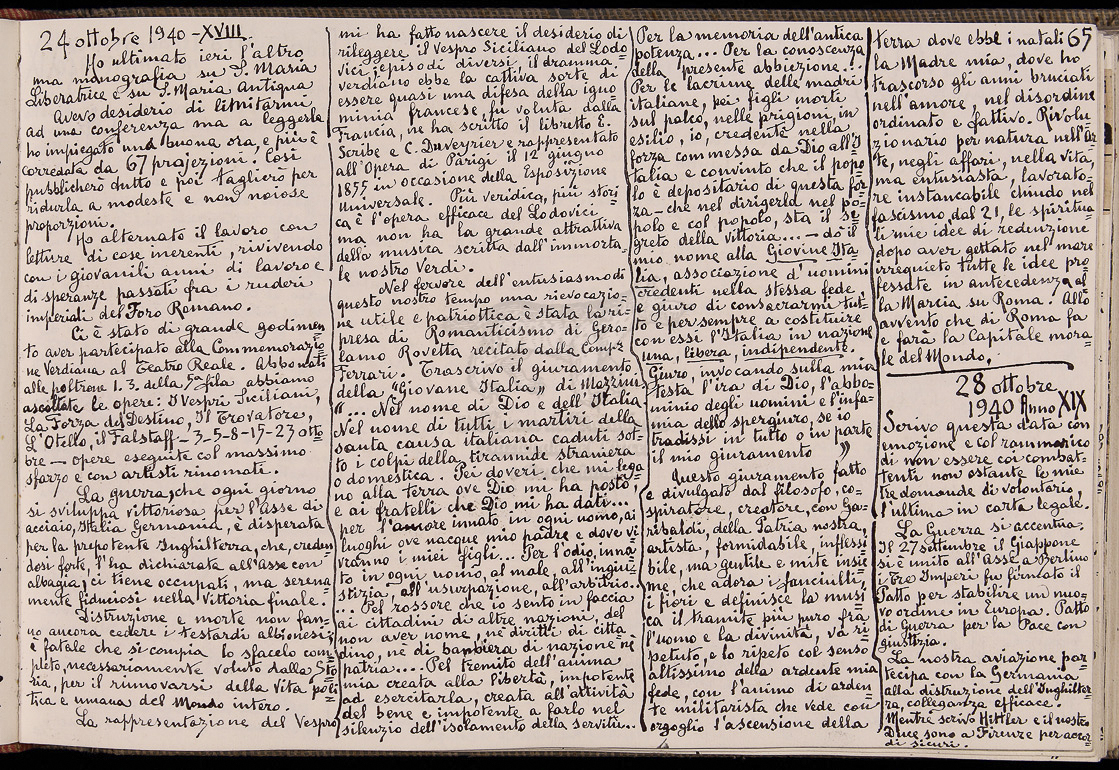 24 ottobre 1940 - XVIII.
Ho ultimato ieri l'altro
una monografia su S. Maria
Liberatrice e su S. Maria Antiqua
Avevo desiderio di limitarmi
ad una conferenza ma a leggerla
ho impiegato una buona ora, e più è
corredata da 67 projezioni. Così
pubblicherò tutto e poi taglierò per
ridurla a modeste e non noiose
proporzioni.
Ho alternato il lavoro con
letture di cose inerenti, rivivendo
con i giovanili anni di lavoro e
di speranze passati fra i ruderi
imperiali del Foro Romano.
Ci è stato di grande godimen=
to aver partecipato alla Commemorazio=
ne Verdiana al Teatro Reale. Abbonati
alle poltrone 1.3. della 5ª fila abbiamo
ascoltate le opere: I Vespri Siciliani,
La Forza del Destino, Il Trovatore,
L'Otello, il Falstaff - 3-5-8-15-23 otto=
bre - opere eseguite col massimo
sfarzo e con artisti rinomati.
La guerra, che ogni giorno
si sviluppa vittoriosa per l'Asse di
acciaio, Italia Germania, è disperata
per la prepotente Inghilterra, che, creden
dosi forte, l'ha dichiarata all'asse con
albagia, ci tiene occupati, ma serena
mente fiduciosi nella Vittoria finale.
Distruzione e morte non fan=
no ancora cedere i testardi albionesi;
è fatale che si compia lo sfacelo com
pleto, necessariamente voluto dalla Sto
ria, per il rinnovarsi della Vita poli
tica e umana del Mondo intero.
La rappresentazione del Vespro
mi ha fatto nascere il desiderio di
rileggere il Vespro Siciliano del Lodo
vici; episodi diversi, il dramma=
verdiano ebbe la cattiva sorte di
essere quasi una difesa della igno
minia francese, fu voluta dalla
Francia, ne ha scritto il libretto E.
Scribe e C. Duveyrier e rappresentato
all'Opera di Parigi il 12 giugno
1855 in occasione della Esposizione
Universale. Più veridica, più stori=
ca è l'opera efficace del Lodovici
ma non ha la grande attrattiva
della musica scritta dall'immorta=
le nostro Verdi.
Nel fervore dell'entusiasmo di
questo nostro tempo una rievocazio=
ne utile e patriottica è stata la ri=
presa di Romanticismo di Gero=
lamo Rovetta recitato dalla Comp.ª
Ferrari. Trascrivo il giuramento
della "Giovane Italia" di Mazzini
"... Nel nome di Dio e dell'Italia
Nel nome di tutti i martiri della
santa causa italiana caduti sot=
to i colpi della tirannide straniera
o domestica. Pei doveri che mi lega
no alla terra ove Dio mi ha posto,
e ai fratelli che Dio mi ha dati...
per l'amore innato in ogni uomo, ai
luoghi ove nacque mio padre e dove vi
vranno i miei figli... Per l'odio, inna
to in ogni uomo, al male, all'ingiu=
stizia, all'usurpazione, all'arbitrio...
... Pel rossore che io sento in faccia
ai cittadini di altre nazioni, del
non aver nome, nè diritti di citta
dino, nè di bandiera di nazione nè
patria.... Pel tremito dell'anima
mia creata alla libertà, impotente
ad esercitarla, creata all'attività
del bene e impotente a farlo nel
silenzio dell'isolamento della servitù...
Per la memoria dell'antica
potenza... Per la conoscenza
della presente abbiezione...
Per le lacrime delle madri
italiane, pei figli morti
sul palco, nelle prigioni, in
esilio, io, credente nella
forza commessa da Dio all'I
talia e convinto che il popo
lo è depositario di questa for
za - che nel dirigerla nel po=
polo e col popolo, sta il se
greto della vittoria... - do il
mio nome alla Giovine Ita
lia, associazione d'uomini
credenti nella stessa fede,
e giuro di consacrarmi tut=
to e per sempre a costituire
con essi l'Italia in nazione
una, libera, indipendente.
Giuro, invocando sulla mia
testa l'ira di Dio, l'abbo=
minio degli uomini e l'infa=
mia dello spergiuro, se io
tradissi in tutto o in parte
il mio giuramento "
Questo giuramento fatto
e divulgato dal filosofo, co=
spiratore, creatore, con Ga=
ribaldi, della Patria nostra,
artista, formidabile, inflessi
bile, ma gentile e mite insie
me, che adora i fanciulli,
i fiori e definisce la musi
ca il tramite più puro fra
l'uomo e la divinità, va ri
petuto, e lo ripeto col senso
altissimo della ardente mia
fede, con l'animo di arden=
te militarista che vede con
orgoglio l'ascensione della
65
terra dove ebbe i natali
la Madre mia, dove ho
trascorso gli anni bruciati
nell'amore, nel disordine
ordinato e fattivo. Rivolu
zionario per natura nell'Ar
te, negli affari, nella vita,
ma entusiasta, lavorato=
re instancabile chiudo nel
fascismo, dal 21, le spiritua
li mie idee di redenzione
dopo aver gettato nel mare
irrequieto tutte le idee pro
fessate in antecedenza al
la Marcia su Roma. Allo
avvento che di Roma fa
e farà la Capitale mora=
le del Mondo.
28 ottobre
1940 Anno XIX
Scrivo questa data con
emozione e col rammarico
di non essere coi combat=
tenti non ostante le mie
tre domande di volontario,
l'ultima in carta legale.
La Guerra si accentua.
Il 27 settembre il Giappone
si è unito all'Asse a Berlino
i tre Imperi fu firmato il
Patto per stabilire un nuo=
vo ordine in Europa. Patto
di Guerra per la Pace con
giustizia.
La nostra aviazione par=
tecipa con la Germania
alla distruzione dell'Inghilter
ra, colleganza efficace.
Mentre scrivo Hittler e il nostro
Duce sono a Firenze per accor
di sicuri.